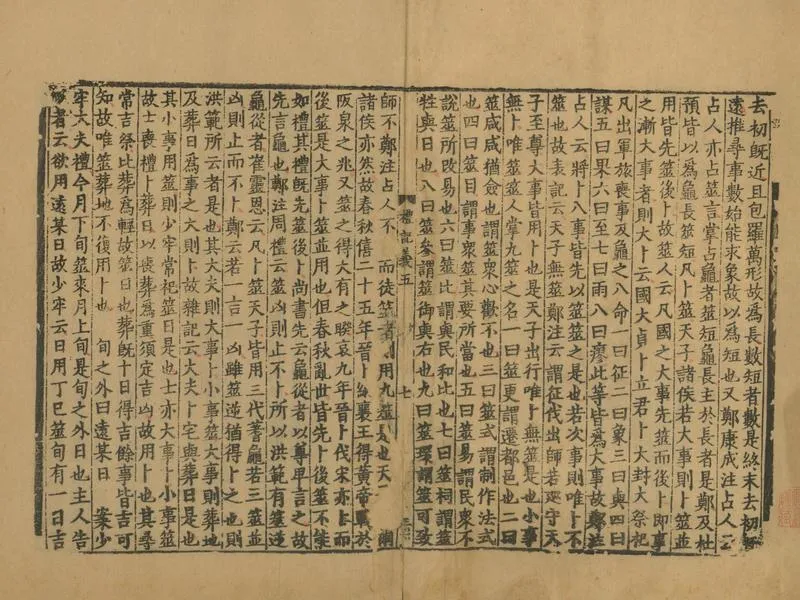 去初既近且包羅萬形故爲長數短者數是終末去初既
遠推尋事數始能求象故以爲短也又鄭康成注占人云
占人亦占筮言掌占龜者筮短龜長主於長者是鄭及杜
預皆以爲龜長筮短凡卜筮天子諸侯若大事則卜筮並
用皆先筮後卜故筮人云凡國之大事先筮而後卜即事
之漸大事者則大卜云國大貞卜立君卜大封大祭祀
凡出軍旅喪事及龜之八命一曰征二曰象三曰與四曰
謀五曰果六曰至七曰雨八曰瘳此等皆爲大事故鄭注
占人云將卜八事皆先以筮筮之是也若次事則唯卜不
筮也故表記云天子無筮鄭注云謂征伐出師若巡守天
子至尊大事皆用卜也是天子出行唯卜無筮是也小事
無卜唯筮筮人掌九筮之名一曰筮更謂遷都邑也二曰
筮咸咸猶僉也謂筮衆心歡不也三曰筮式謂制作法式
也四曰筮目謂事衆筮其要所當也五曰筮易謂民衆不
說筮所改易也六曰筮比謂與民和比也七曰筮祠謂筮
牲與日也八曰筮參謂筮御與右也九曰筮環謂筮可致
禮記義五 七
師不鄭注占人不 而徒筮者則用九筮是也天
諸侯亦然故春秋僖二十五年晉卜納襄王得黃帝戰於
阪泉之兆又筮之得大有之睽哀九年晉卜伐宋亦卜而
後筮是大事卜筮並用也但春秋亂世皆先卜後筮不能
如禮其禮既先筮後卜尚書先云龜從者以尊卑言之故
先言龜也鄭注周禮云筮凶則止不卜所以洪範有筮逆
龜從者崔靈恩云凡卜筮天子皆用三代蓍龜若三筮並
凶則止而不卜鄭云若一吉一凶雖筮逆猶得卜之也則
洪範所云者是也其大夫則大事卜小事筮大事則葬地
及葬日爲事之大則卜故雜記云大夫卜宅與葬日是也
其小事用筮則少牢常祀筮日是也士亦大事卜小事筮
故士喪禮卜葬日以喪葬爲重須定吉凶故用卜也其尋
常吉祭比葬爲輕故筮日也葬既卜日得吉餘事皆吉可
知故唯筮葬地不復用卜也 旬之外曰遠某日 案少
牢大夫禮今月下旬筮來月上旬是旬之外日也主人告
筮者云欲用遠某日故少牢云日用丁巳筮旬有一日吉